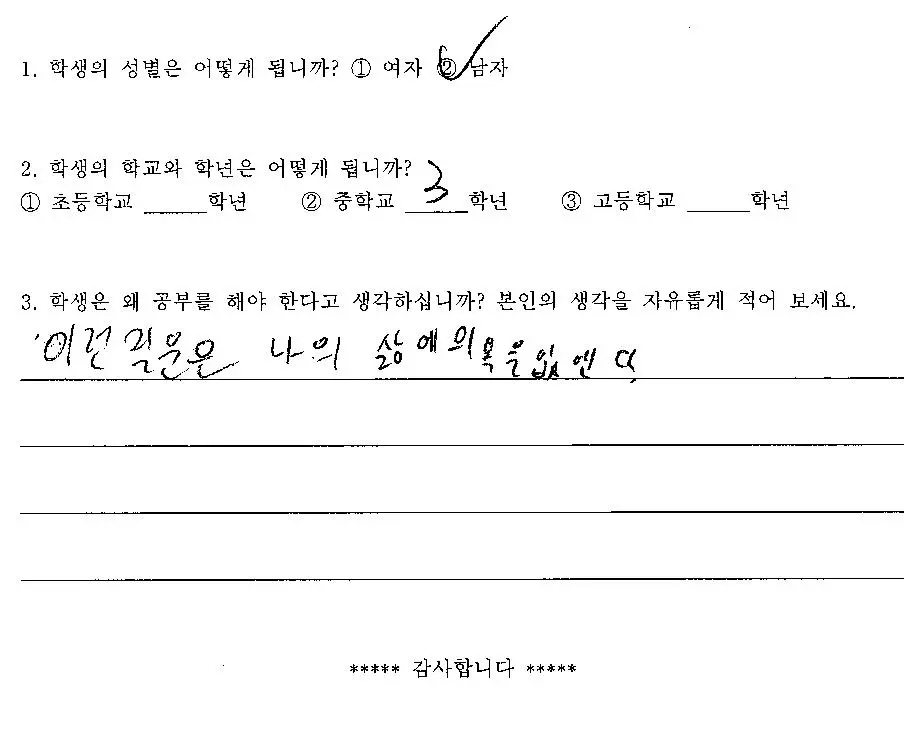 1. 학생의 성별은 어떻게 됩니까? ① 여자 ② 남자
2. 학생의 학교와 학년은 어떻게 됩니까?
① 초등학교 ______학년 ② 중학교 3학년 ③ 고등학교 ______학년
3. 학생은 왜 공부를 해야 한다고 생각하십니까? 본인의 생각을 자유롭게 적어 보세요.
이런 질문은 나의 삶에 의욕을 없앤다.
***** 감사합니다 *****